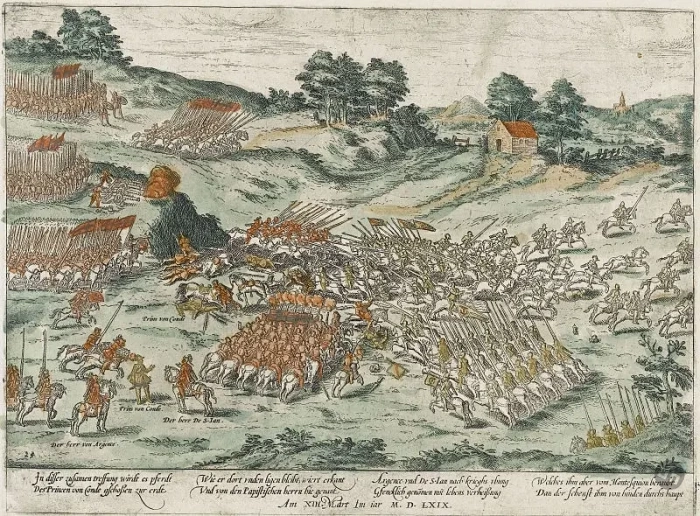 Prin von Conde
Prin von Conde
Der herr De S. Ian.
Der herr von Argence.
In diser zusamen treffung wirdt es pferdt
Des Prinzen von Conde geschossen zur erdt.
Wie er dort unden ligen bleibt, wirt erkant
Und von den Papistischen herrn hie genant.
Argence und De S. Ian nach kriegs ubung
gefenklich genomen mit lebens verheisung
Welches ihm aber vom Montesquiou
Dan der scheust ihm von hinden durchs haupt
Am XIII Mart Im iar M. D. LXIX.